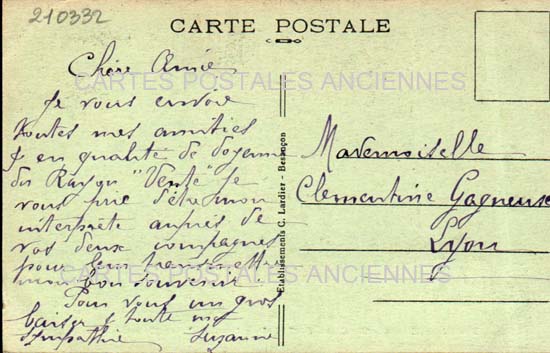 210332
CARTE POSTALE
Chère Amie
CARTES POSTALES ANCIENNES
Je vous envoie
toutes mes amitiés
& en qualité de doyenne
du Rayon "Vente" je
vous prie d'être mon
interprète auprès de
vos deux compagnes
pour leur transmettre
mon bon souvenir
CARTES POSTALES ANCIENNES
Pour vous un gros
baiser & toute ma
sympathie Suzanne
Etablissements C. Lardier - Besançon
Mademoiselle
Clementine Gagneuse
Lyon